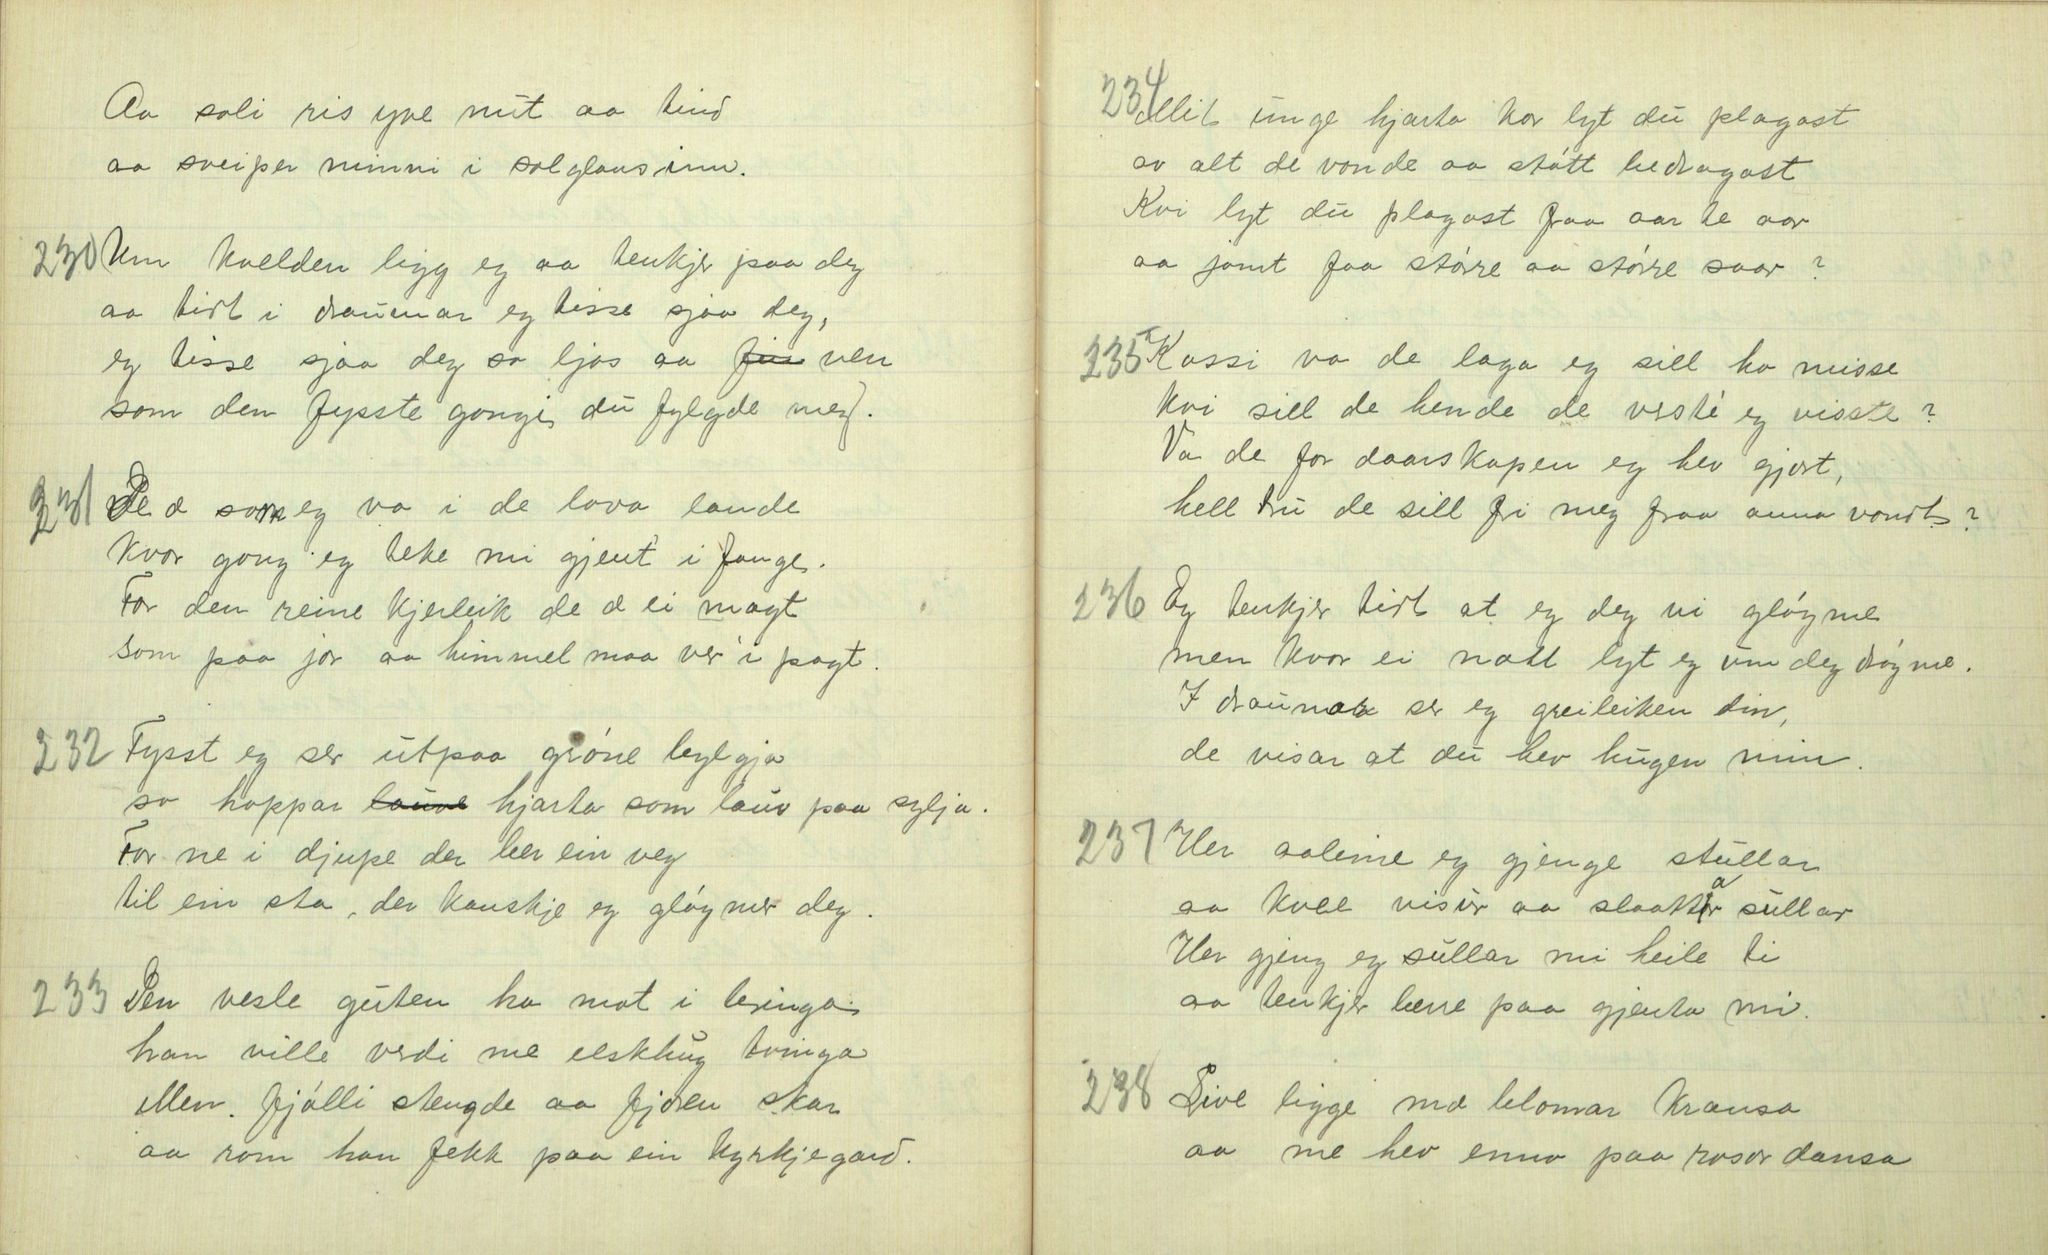 Aa soli ris yve nut aa tind
aa sveiper minni i solglansinn.
230 Um kvelden ligg eg aa tenkjer paa deg
aa tidt i draumar eg tisse sjaa deg,
eg tisse sjaa deg so ljos aa fin ven
som den fysste gongi, du fylgde meg.
231 De æ som eg va i de lova lande
kvor gong eg teke mi gjent' i fange.
For den reine kjerleik de æ ei magt
som paa jor aa himmel maa ver' i pagt.
232 Fysst eg ser utpaa gróne bylgja
so hoppar hjarta som lauv paa sylja.
For ne i djupe der ber ein veg
til ein sta, der kanskje eg glóymer deg.
233 Den vesle guten ha mot i bringa
han ville verdi me elskhug tvinga
Men fjólli stengde aa fjoren skar
aa rom han fekk paa ein kyrkjegard.
234 Mit unge hjarta kor lyt du plagast
av alt de vonde aa stótt bedragast
Kvi lyt du plagast fraa aar te aar
aa jamt faa stórre aa stórre saar?
235 Kossi va de laga eg sill ha misse
kvi sill de hende de verste eg visste?
Va de for daarskapen eg hev gjort,
hell tru de sill fri meg fraa anna vondt?
236 Eg tenkjer tidt at eg deg vi glóyme
men kvor ei natt lyt eg um deg dróyme.
I draumar ser eg greileiken din,
de visar at du hev hugen min.
237 Her aaleine eg gjenge stullar
aa kvee visur aa slaattar sullar
Her gjeng eg sullar mi heile ti
aa tenkjer berre paa gjenta mi.
238 Live ligge mæ blomar kransa
aa me hev enno paa rosor dansa